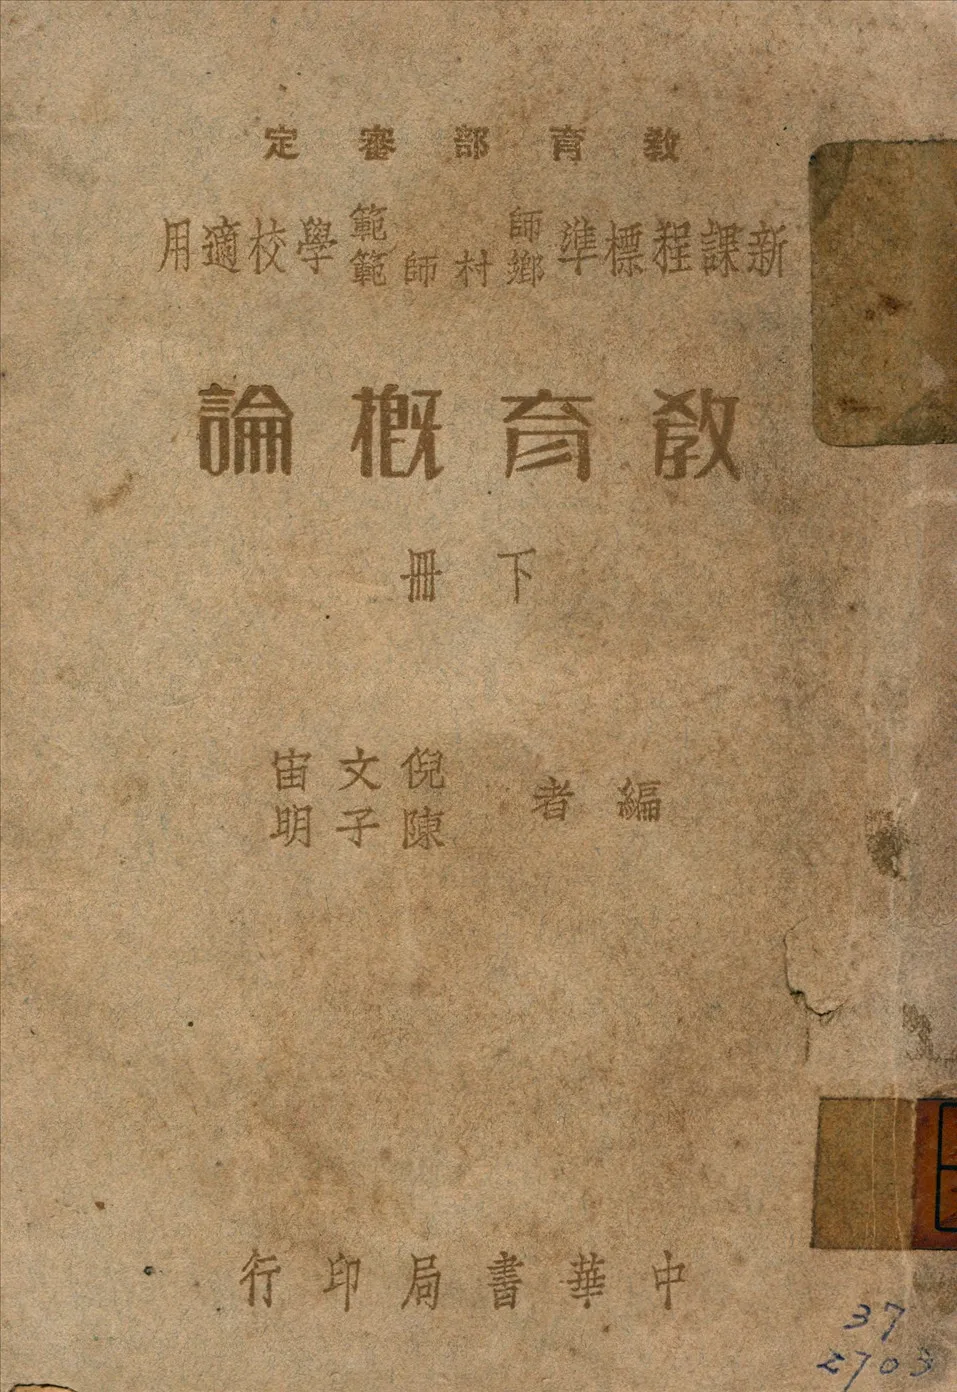 教育部審定
新課程標準師範鄉村師範學校適用
教育概論
下冊
編者 倪文宙 陳子明
中華書局印行
37
2703